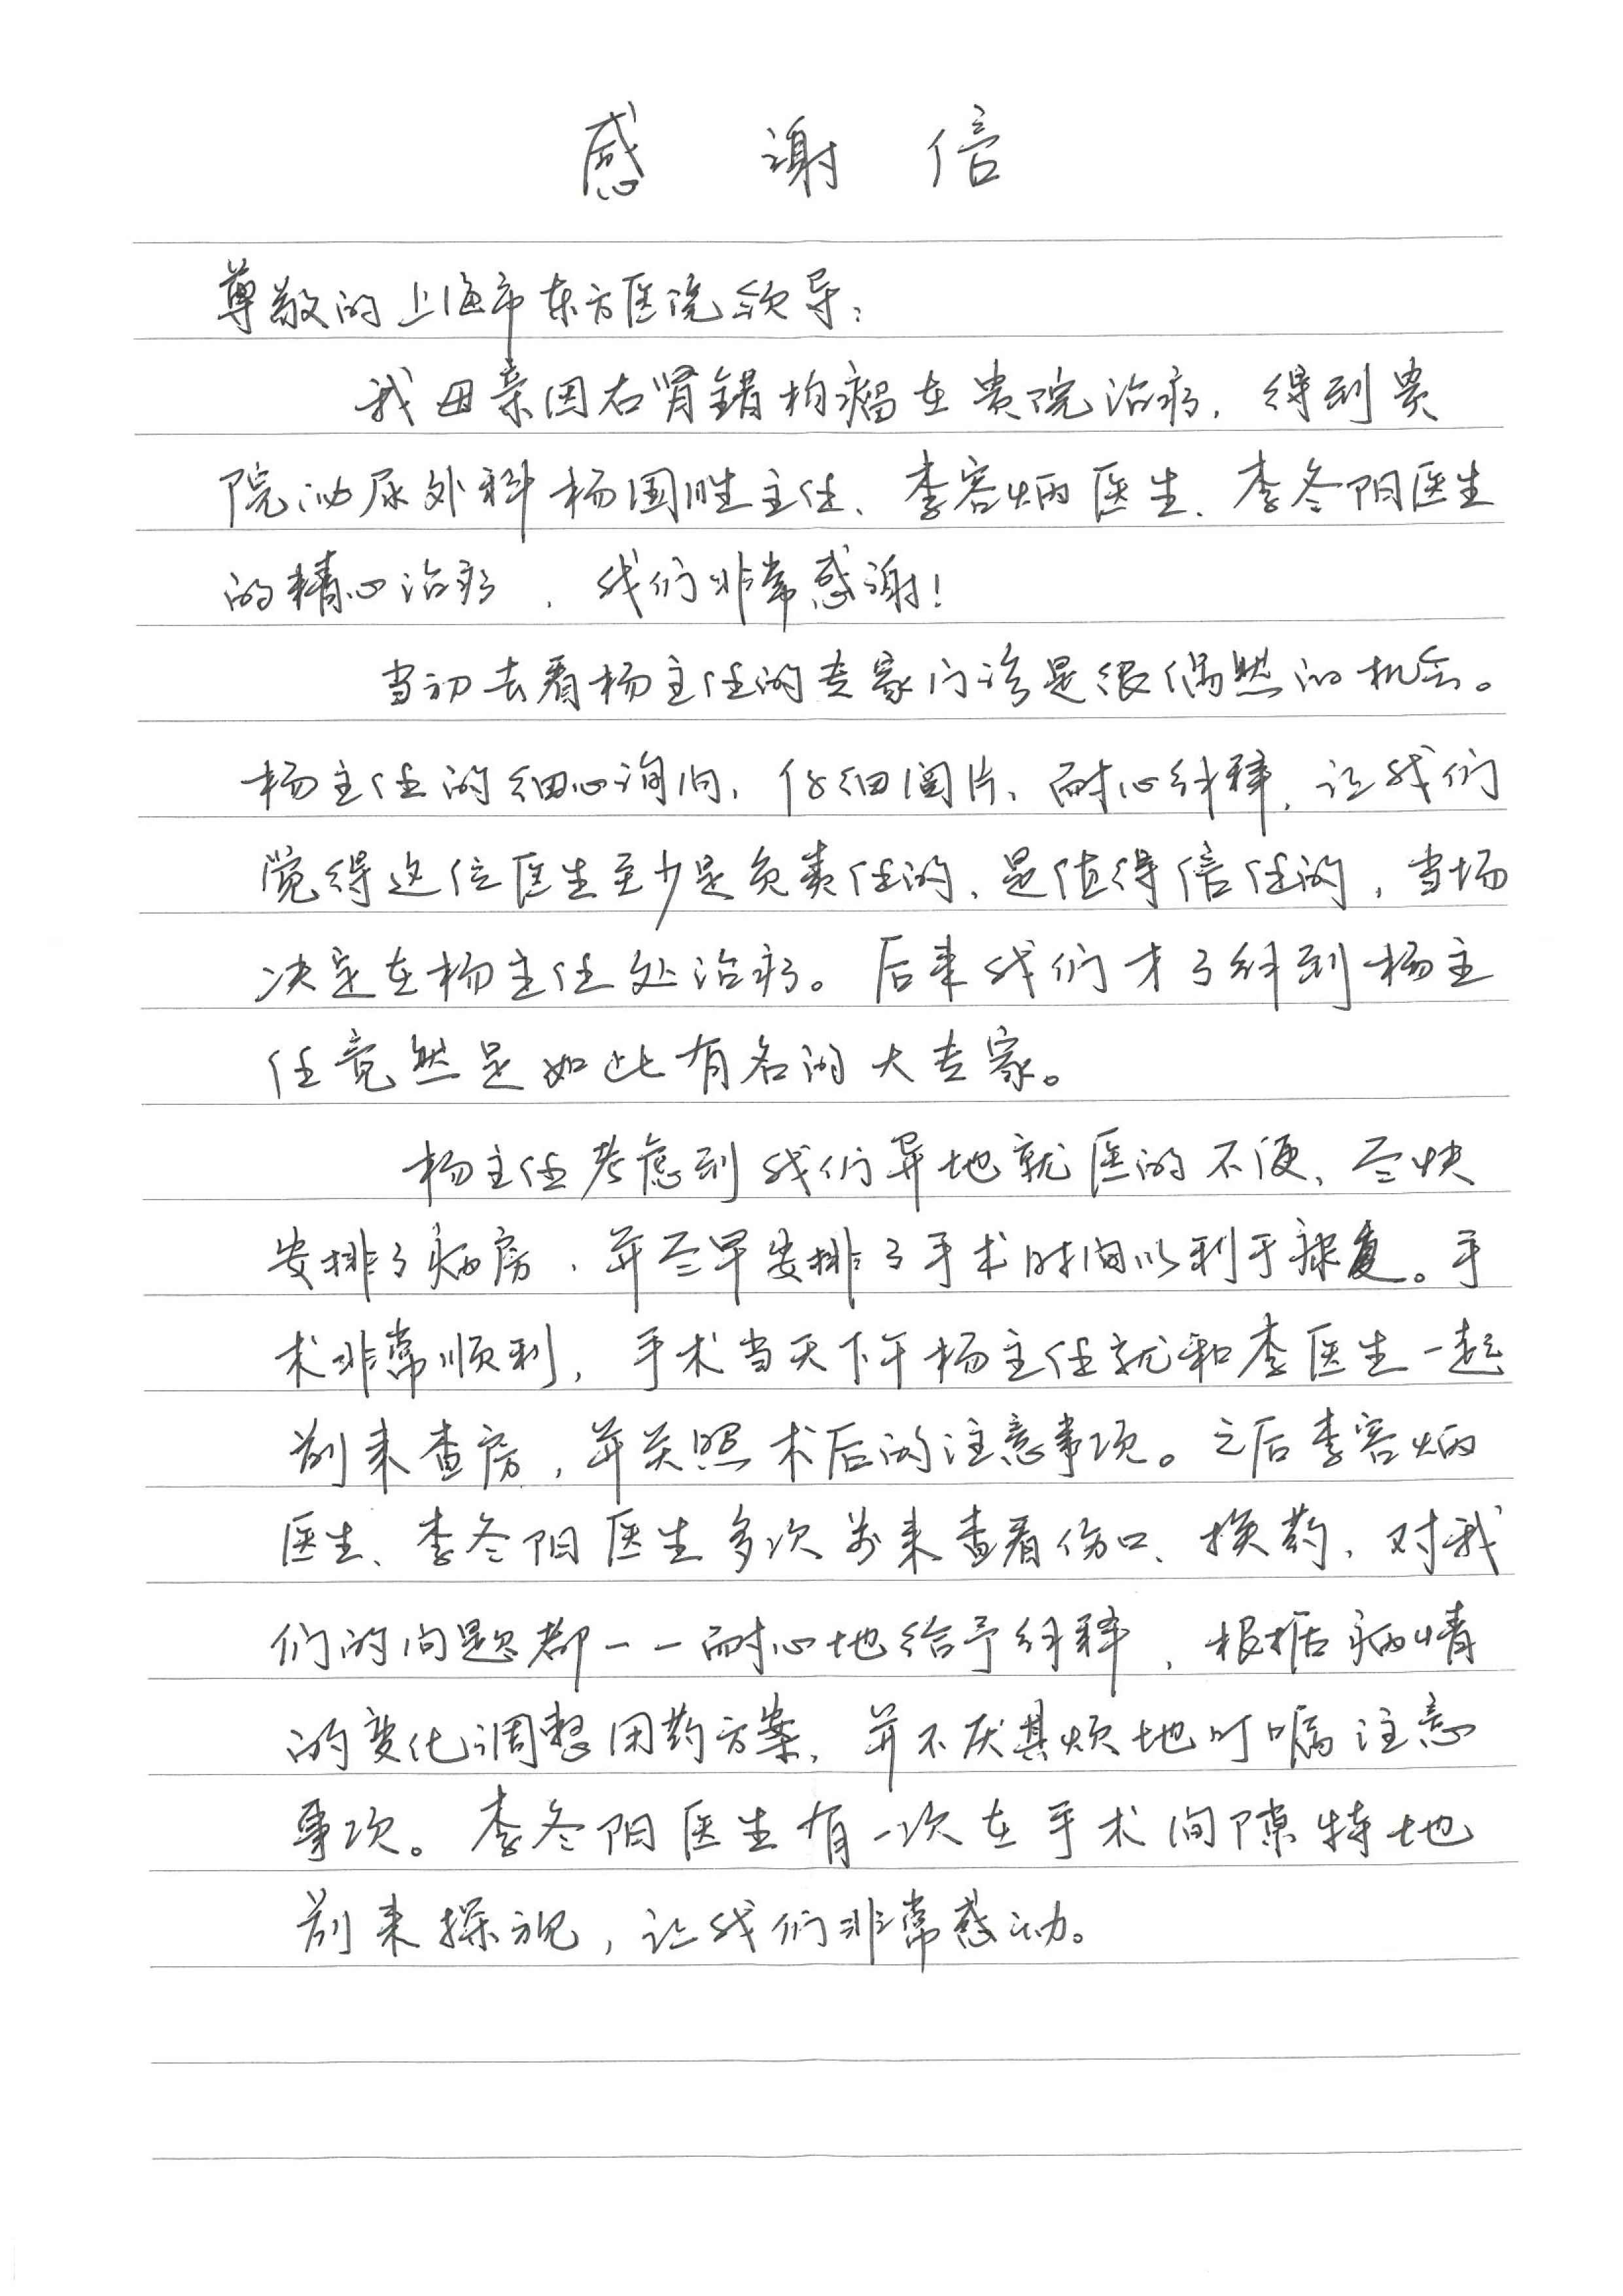 感谢信
尊敬的上海市东方医院领导：
我母亲因右肾错构瘤在贵院治疗，得到贵
院泌尿外科杨国胜主任、李容炳医生、李冬阳医生
的精心治疗，我们非常感谢！
当初去看杨主任的专家门诊是很偶然的机会。
杨主任的细心询问、仔细阅片、耐心纾释，让我们
觉得这位医生至少是负责任的、是值得信任的，当场
决定在杨主任处治疗。后来我们才了纾到杨主
任竟然是如此有名的大专家。
杨主任考虑到我们异地就医的不便，尽快
安排了病房，并尽早安排了手术时间以利于康复。手
术非常顺利，手术当天下午杨主任就和李医生一起
前来查房，并关照术后的注意事项。之后李容炳
医生、李冬阳医生多次前来查看伤口、换药，对我
们的问题都一一耐心地给予纾释，根据病情
的变化调整用药方案，并不厌其烦地叮嘱注意
事项。李冬阳医生有一次在手术间隙特地
前来探视，让我们非常感动。